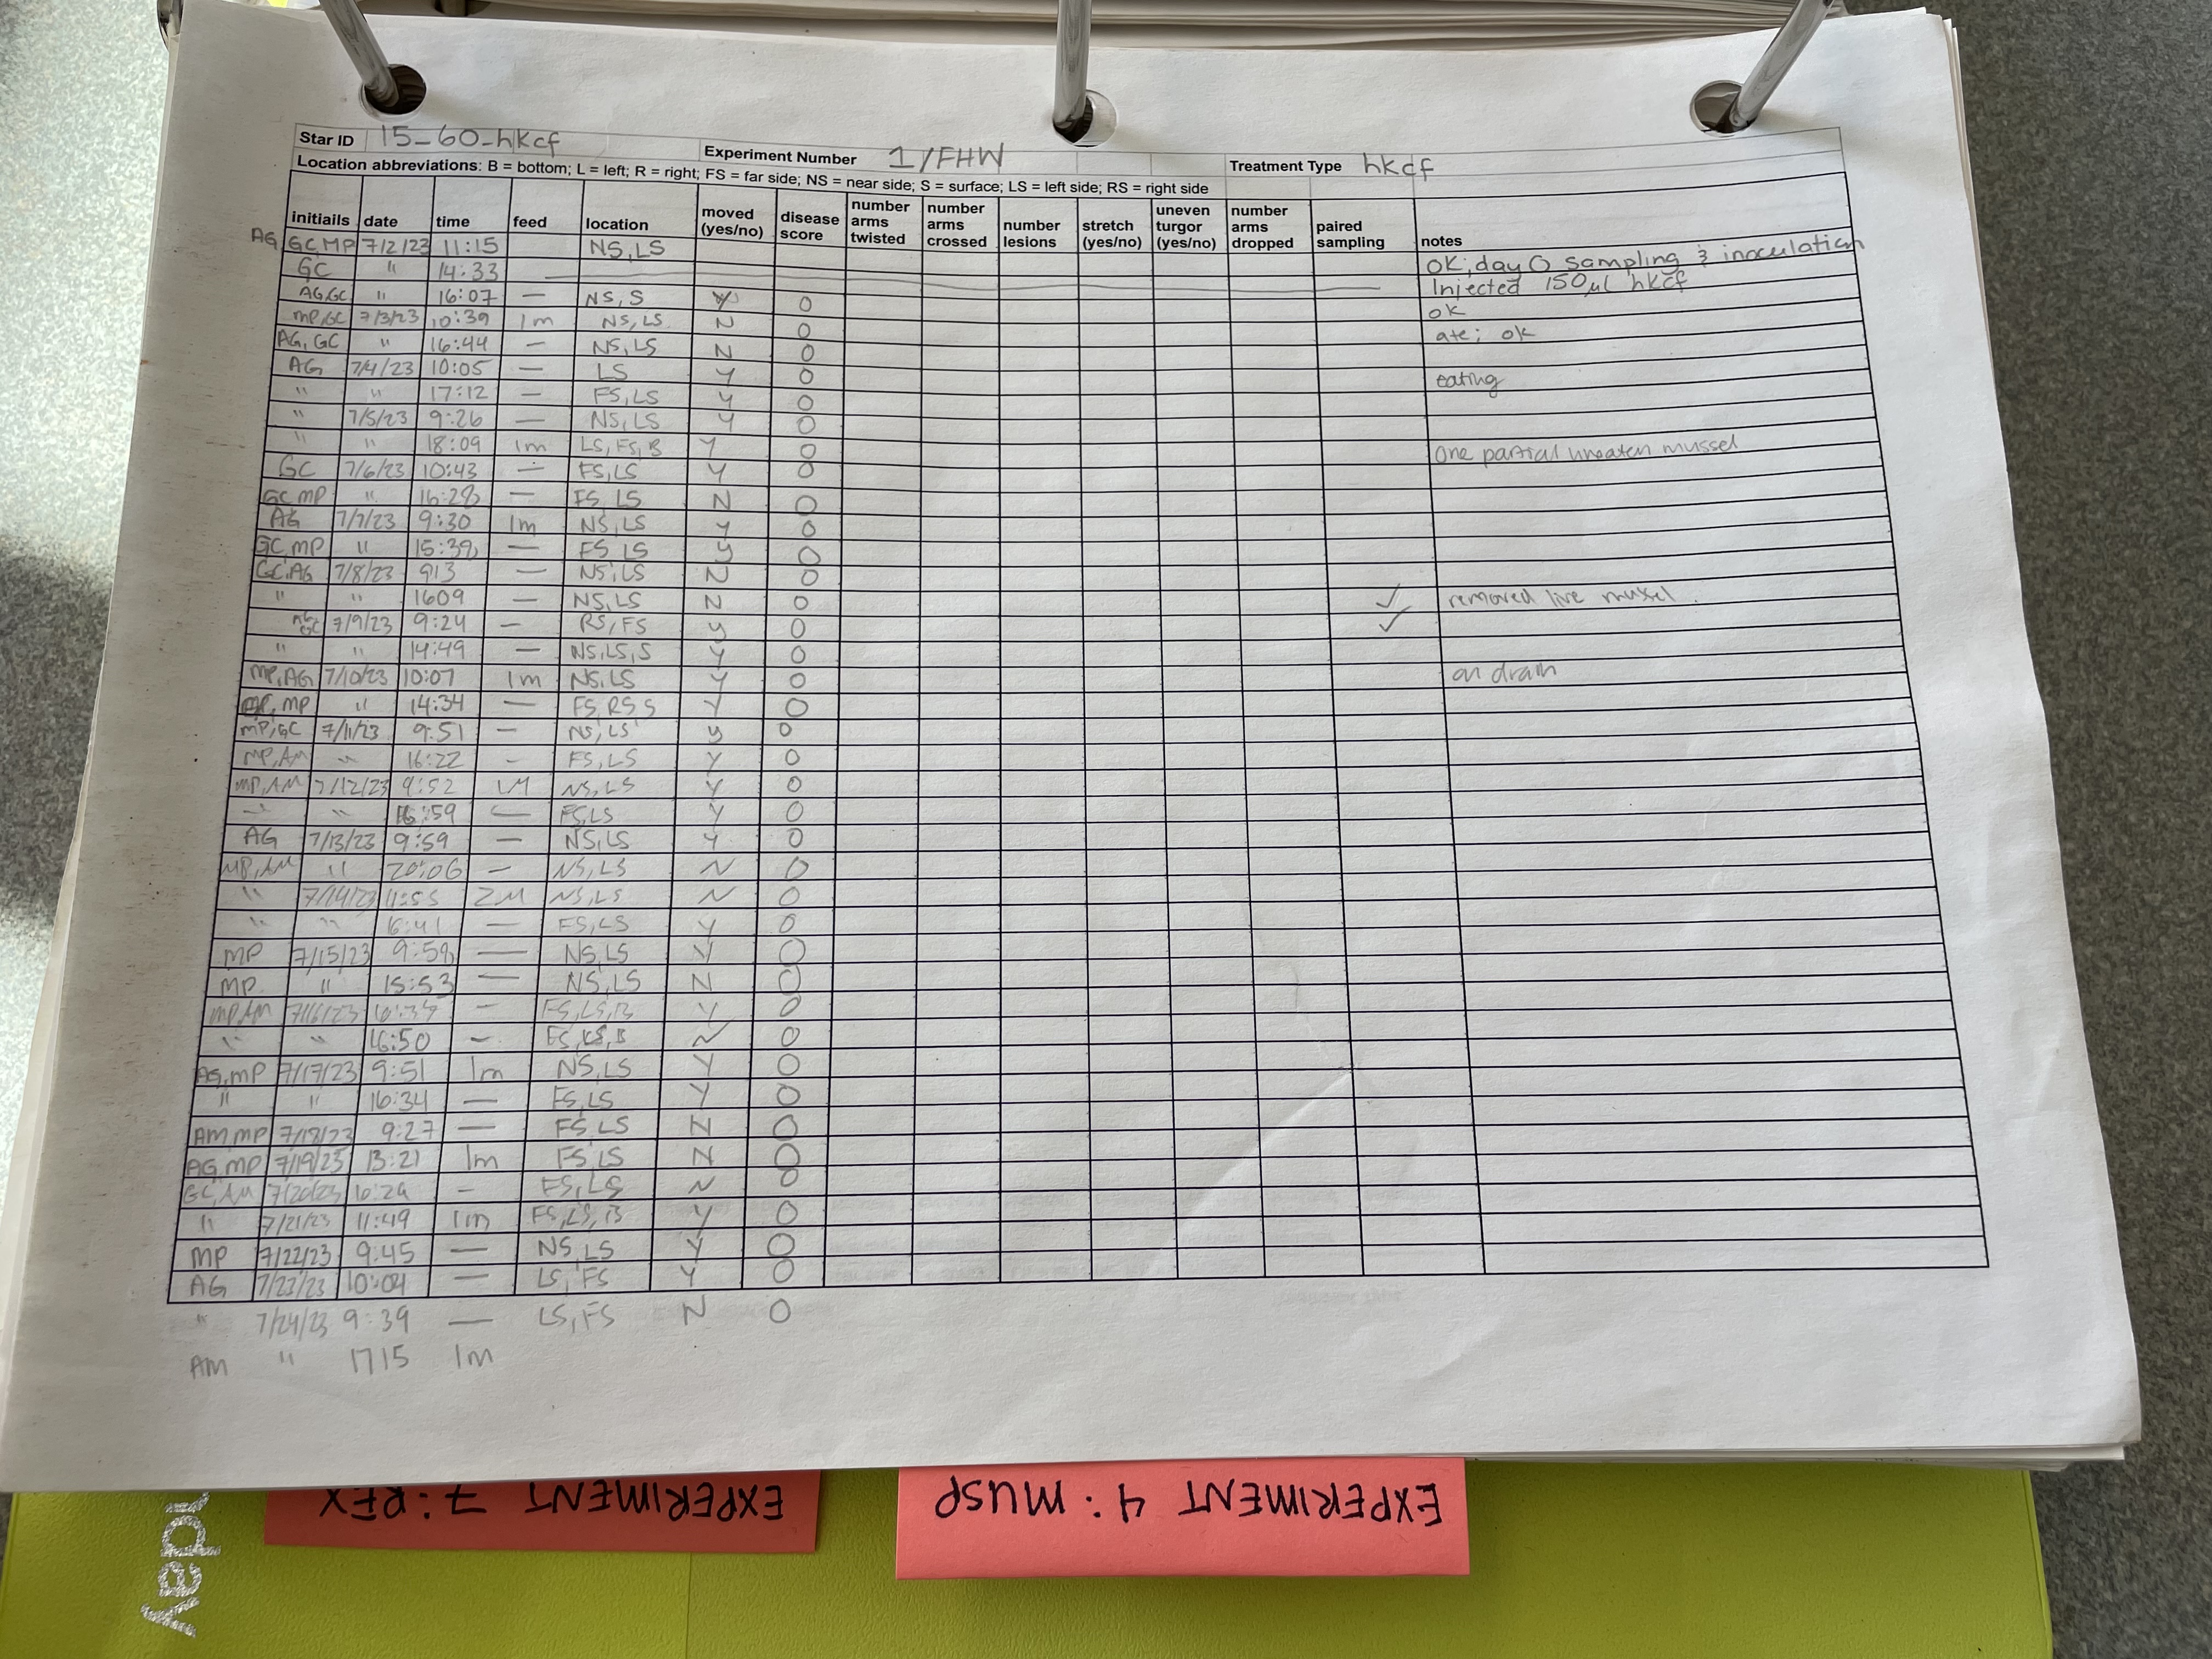 Star ID 15_60_hkcf Experiment Number 1/FHW Treatment Type hkcf
Location abbreviations: B = bottom; L = left; R = right; FS = far side; NS = near side; S = surface; LS = left side; RS = right side
initiails date time feed location moved (yes/no) disease score number arms twisted number arms crossed number lesions stretch (yes/no) uneven turgor (yes/no) number arms dropped paired sampling notes
AG, GC, MP 7/2/23 11:15 NS, LS OK; day 0 sampling & inoculation
GC " 14:33 Injected 150µl hkcf
AG,GC " 16:07 — NS, S Y 0 ok
MP,GC 7/3/23 10:39 1m NS, LS N 0 ate; ok
AG, GC " 16:44 — NS, LS N 0
AG 7/4/23 10:05 — LS Y 0 eating
" " 17:12 — FS, LS Y 0
" 7/5/23 9:26 — NS, LS Y 0
" " 18:09 1m LS, FS, B Y 0 One partial uneaten mussel
GC 7/6/23 10:43 — FS, LS Y 0
GC, MP " 16:28 — FS, LS N 0
AG 7/7/23 9:30 1m NS, LS Y 0
GC, MP " 15:39 — FS, LS y 0
GC, AG 7/8/23 913 — NS, LS N 0
" " 1609 — NS, LS N 0 ✓ removed live mussel.
GC 7/9/23 9:24 — RS, FS y 0 ✓
" " 14:49 — NS, LS, S Y 0
MP, AG 7/10/23 10:07 1m NS, LS Y 0 on drain
MP " 14:34 — FS, RS, S Y 0
MP, GC 7/11/23 9:51 — NS, LS y 0
MP, AM " 16:22 - FS, LS Y 0
MP, AM 7/12/23 9:52 1M NS, LS Y 0
" " 16:59 — FS, LS Y 0
AG 7/13/23 9:59 — NS, LS Y 0
MP, AM " 20:06 — NS, LS N 0
" 7/14/23 11:55 2M NS, LS N 0
" " 6:41 — FS, LS Y 0
MP 7/15/23 9:58 — NS, LS Y 0
MP " 15:53 — NS, LS N 0
MP, AM 7/16/23 - FS, LS, B Y 0
" " 16:50 — FS, LS, B N 0
AG, MP 7/17/23 9:51 1m NS, LS Y 0
" " 16:34 — FS, LS Y 0
AM, MP 7/18/23 9:27 — FS, LS N 0
AG, MP 7/19/23 13:21 1m FS, LS N 0
GC, AM 7/20/23 - FS, LS N 0
" 7/21/23 11:49 1m FS, LS, B Y 0
MP 7/22/23 9:45 — NS, LS Y 0
AG 7/23/23 10:04 — LS, FS Y 0
" 7/24/23 9:39 — LS, FS N 0
AM " 1715 1m
EXPERIMENT 7: REX
EXPERIMENT 4: MUSP
nday